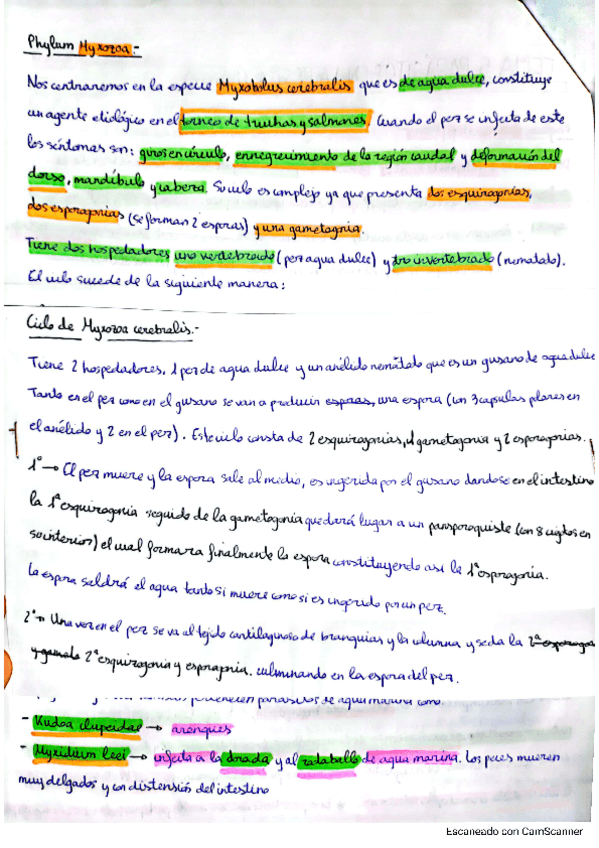 Phylum Myxozoa:-
Nos centraremos en la especie Myxobolus cerebralis que es de agua dulce, constituye
un agente etiológico en el torneo de truhas y salmones. Cuando el pez se infecta de este
los síntomas son: giros en círculo, ennegrecimiento de la región caudal y deformación del
dorso, mandíbula y cabeza. Su ciclo es complejo ya que presenta dos esquizogonias,
dos esporogonias (se forman 2 esporas) y una gametogonia.
Tiene dos hospedadores uno vertebrado (pez agua dulce) y otro invertebrado (nematodo).
El ciclo sucede de la siguiente manera:
Ciclo de Myxozoa cerebralis.-
Tiene 2 hospedadores, 1 pez de agua dulce y un anélido nemátodo que es un gusano de agua dulce
Tanto en el pez como en el gusano se van a producir esporas, una espora (con 3 capsulas polares en
el anélido y 2 en el pez). Este ciclo consta de 2 esquizogonias, 1 gametogonia y 2 esporogonias.
1º → El pez muere y la espora sale al medio, es ingerida por el gusano dandose en el intestino
la 1ª esquizogonia seguido de la gametogonia que dará lugar a un pansporoquiste (con 8 cigotos en
su interior) el cual formara finalmente la espora constituyendo así la 1ª esporogonia.
La espora saldrá el agua tanto si muere como si es ingerido por un pez.
2º → Una vez en el pez se va al tejido cartilaginoso de branquias y la columna y se da la 2ª esporogo
y gameto 2ª esquizogonia y esporogonia. culminando en la espora del pez.
pertenecen parásitos de agua marina como:
- Kudoa clupeidae → arenques
- Myxidium leei → infecta a la dorada y al rodaballo de agua marina. Los peces mueren
muy delgados y con distensión del intestino
Escaneado con CamScanner